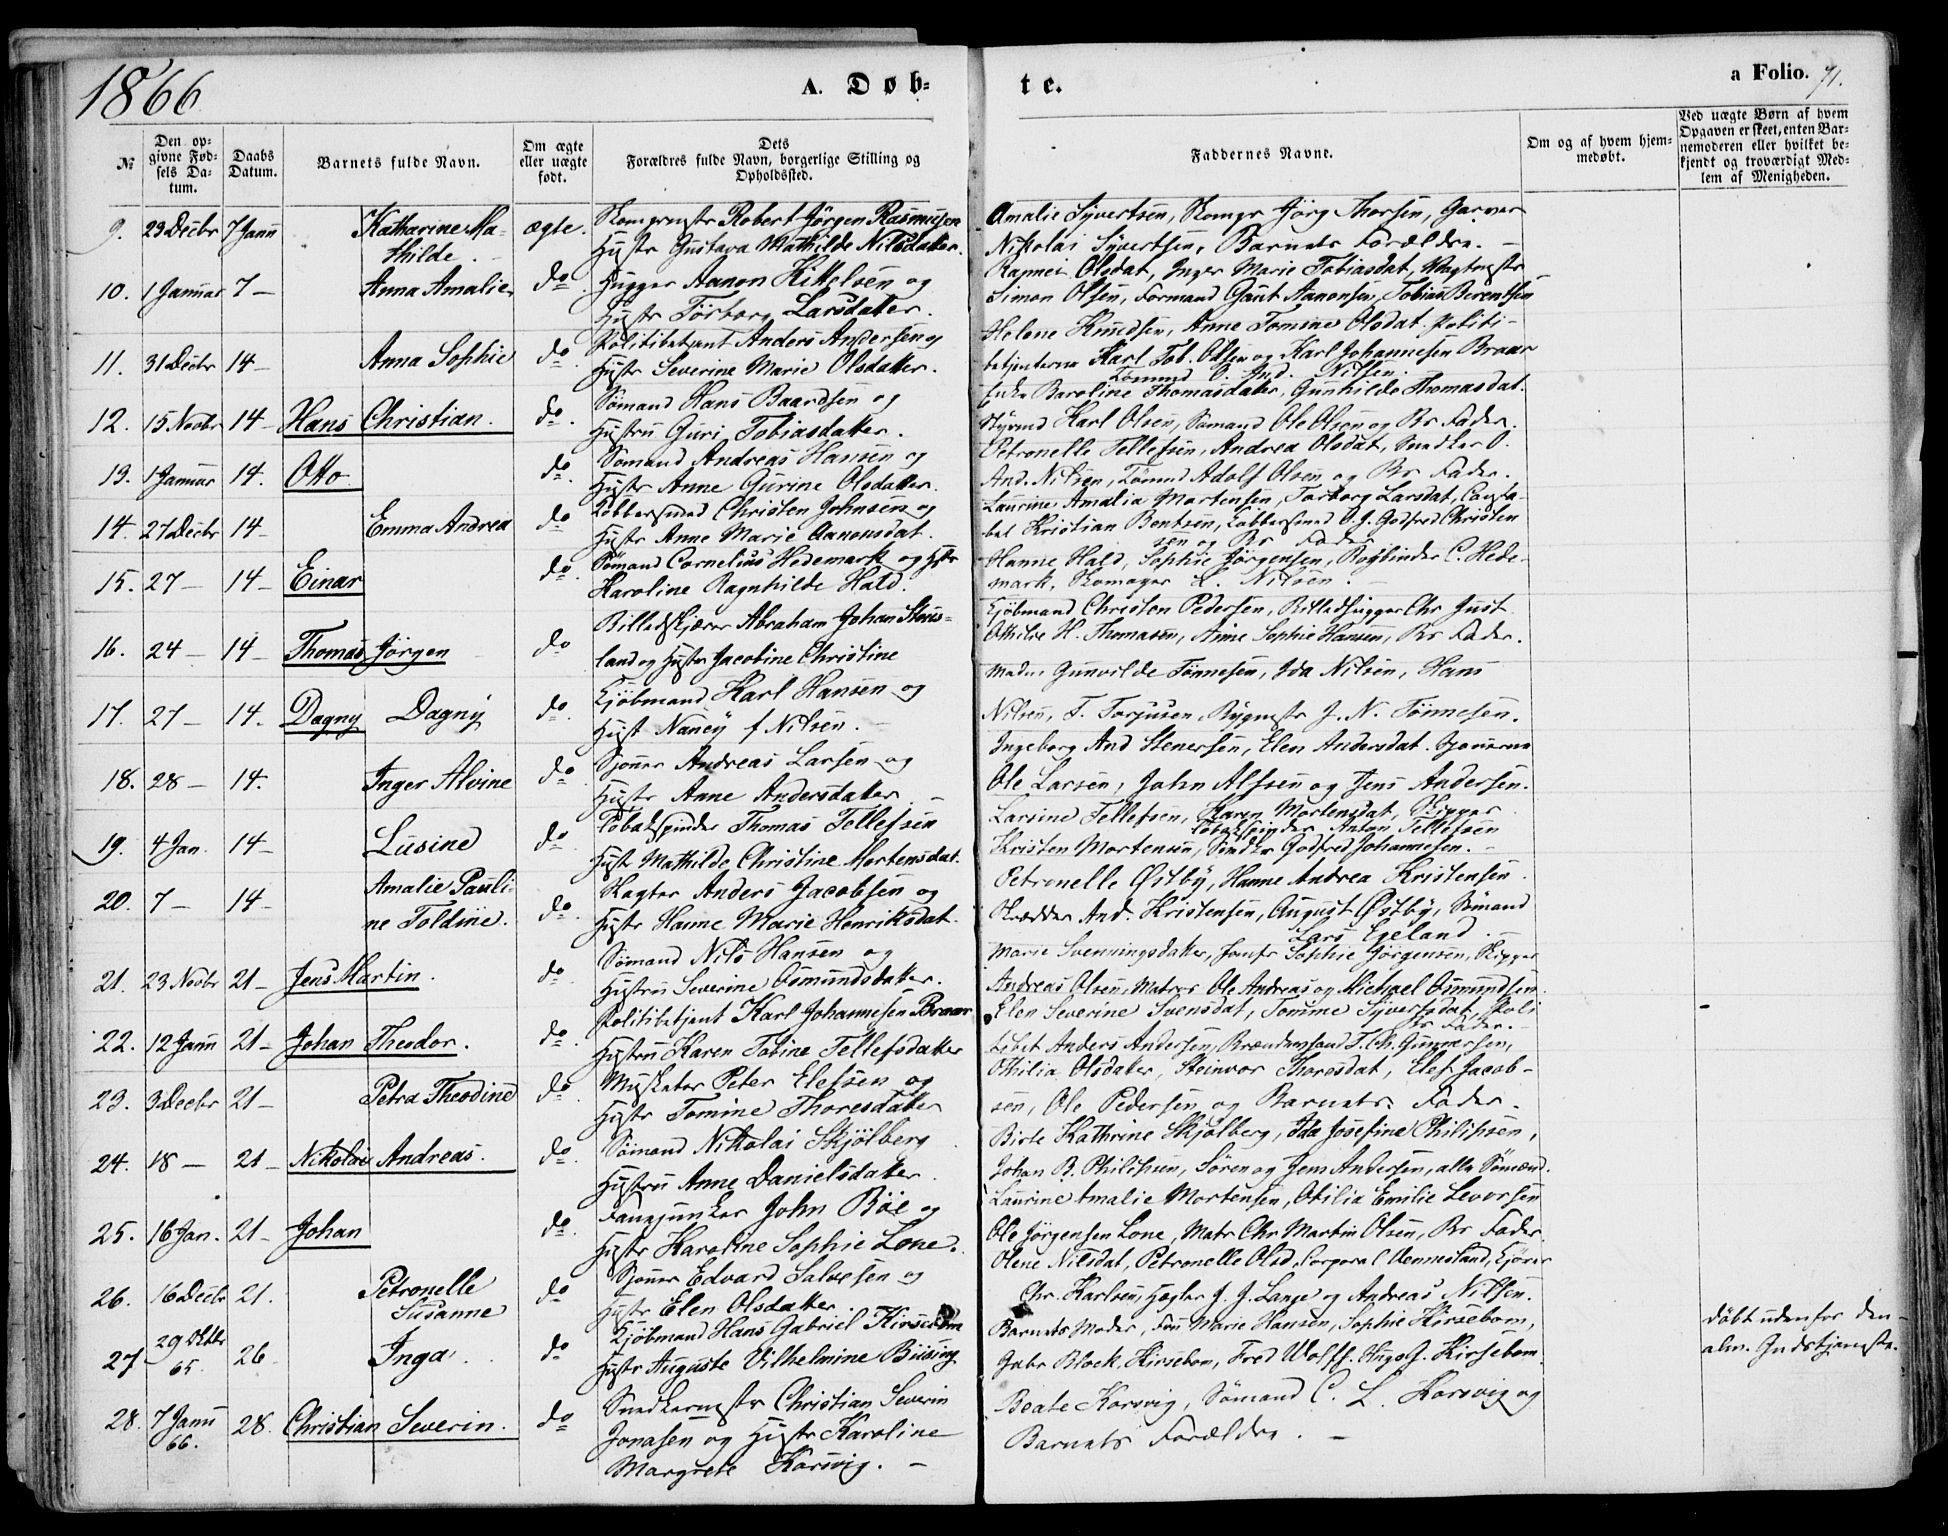 1866
A. Døb-
te.
a Folio. 71.
№
Den opgivne Fødsels Datum.
Daabs Datum.
Barnets fulde Navn.
Om ægte eller uægte født.
Dets Forældres fulde Navn, borgerlige Stilling og Opholdssted.
Faddernes Navne.
Om og af hvem hjemmedøbt.
Ved uægte Børn af hvem Opgaven er skeet, enten Barnemoderen eller hvilket bekjendt og troværdigt Medlem af Menigheden.
9. 29 Decbr 7 Janu Katharine Ma-
thilde.
ægte.
Skomgrmstr Robert Jörgen Rasmusen
Hustr Gustava Mathilde Nilsdatter.
Amalie Syvertsen, Skomgr Jörg Thorsen, Garver
Nikolai Syvertsen, Barnets Forældre. –
10. 1 Januar 7 – Anna Amalie do.
Hugger Aanon Kittelsen og
Hustr Torborg Larsdatter.
Olsdat, Inger Marie Tobiasdat, Vagtmstr
Simon Olsen, Formand Gaut Aanonsen, Tobias Berentsen
11. 31 Decbr 14 – Anna Sophie do.
Politibetjent Anders Andersen og
Hustr Severine Marie Olsdatter.
Helene Knudsen, Anne Tomine Olsdat. Politi-
betjenterne Karl Tob. Olsen og Karl Johannesen Braar
12. 15 Novbr 14 – Hans Christian. do.
Sömand Hans Baardsen og
Hustru Guri Tobiasdatter.
Tömmd O. And. Nilsen.
Enke Baroline Thomasdatter, Gunhilde Thomasdat.
Styrmd Karl Olsen, Sömand Ole Olsen og Br Fader.
13. 1 Januar 14. Otto do.
Sömand Andreas Hansen og
Hustr Anne Gurine Olsdatter.
Petronelle Tellefsen, Andrea Olsdat, Snedker O.
And. Nilsen, Tömmd Adolf Olsen og Br Fader.
14. 27 Decbr 14 – Emma Andrea do
Kobbersmed Christen Johnsen og
Hustr Anne Marie Aanonsdat.
Laurine Amalia Mortensen, Torborg Larsdat, Consta-
bel Kristian Bentsen, Kobbersmed O. J. Godfred Christen
sen og Br Fader
15. 27 – 14 – Einar do.
Sömand Cornelius Hedemark og Hstr
Karoline Ragnhilde Hald.
Hanne Hald, Sophie Jörgensen, Bogbinder C. Hede-
mark, Skomager L. Nilsen. –
16. 24 – 14 – Thomas Jörgen do
Billedskjærer Abraham Johan
land og Hustr Jacobine Christine
Kjöbmand Christen Pedersen, Billedhugger Chr Just
Othilde H. Thomasen, Aine Sophie Hansen, Br Fader.
17. 27 – 14. Dagny Dagny do.
Kjöbmand Karl Hansen og
Hust Nancy f Nilsen.
Madm Gunvilde Tönnesen, Ida Nilsen, Hans
Nilsen, T. Torjusen, Bygmstr J. N. Tönnesen.
18. 28 – 14. Inger Alvine do.
Sjouer Andreas Larsen og
Hustr Anne Andersdatter. –
Ingeborg And Stenersen, Elen Andersdat. Sjouerne
Ole Larsen, John Alfsen og Jens Andersen.
19. 4 Jan. 14 – Lusine do.
Tobakspinder Thomas Tellefsen
Hust Mathilde Christine Mortensdat.
Larsine Tellefsen, Karen Mortensdat, Skipper
Tobakspinder Anton Tellefsen
Kristen Mortensen, Snedkr Godfred Johannesen. –
20. 7 – 14 – Amalie Pauli-
ne Toldine. do.
Slagter Anders Jacobsen og
Hustr Hanne Marie Henriksdat.
Petronelle Østby, Hanne Andrea Kristensen
Skrædder And. Kristensen, August Østby, Sömand
Lars Egeland. –
21. 23 Novbr 21 – Jens Martin. do
Sömand Nils Hansen og
Hustru Severine Osmundsdatter.
Marie Svenningsdatter, Jomfr Sophie Jörgensen, Skipper
Andreas Olsen, Matros Ole Andreas og Mikael Osmundsen.
22. 12 Janu 21 – Johan Theodor. do.
Politibetjent Karl Johannesen Braar
Hustru Karen Tobine Tellefsdatter
Elen Severine Svensdat, Tomine Syvertsdat, Poli
Br Fader. –
tibet Anders Andersen, Brændevinsmd T. Ch. Gunnersen,
23. 3 Decbr 21 – Petra Theodine do.
Musketer Peter Elefsen og
Hustr Tomine Thoresdatter
Othilia Olsdatter, Steinvor Thoresdat, Elef Jacob-
sen, Ole Pedersen og Barnets Fader.
24. 18 – 21 – Nikolai Andreas. do.
Sömand Nikolai Skjölberg
Hustru Anne Danielsdatter.
Birte Kathrine Skjölberg, Ida Josefine Philipsen,
Johan B. Philipsen, Sören og Jens Andersen, alle Sömænd.
25. 16 Jan. 21 – Johan do.
Fanejunker John Böe og
Hustr Karoline Sophie Lone.
Laurine Amalie Mortensen, Otilia Emilie Levorsen
Ole Jörgensen Lone, Matr Chr Martin Olsen, Br Fader.
26. 16 Decbr 21. Petronelle
Susanne do.
Sjouer Edvard Salvesen og
Hustr Elen Olsdatter.
Olene Nilsdat, Petronelle Olsd, Corporal Vennesland, Kjörer
Chr. Karlsen, Hægter J. J. Lange og Andreas Nilsen.
27 29 Oktbr
65. 26 Inga. do
Kjöbmand Hans Gabriel Kirsebom
Hustr Auguste Vilhelmine Büsing
Barnets Moder, Fru Marie Hansen, Sophie Kirsebom,
Gabr Block Kirsebom, Fred Wolff. Hugo J. Kirsebom.
Döbt udenfor den
alm. Gudstjeneste.
28. 7 Janu
66. 28. Christian Severin. do
Snedkermstr Christian Severin
Jonasen og Hustr Karoline
Margrete Korsvig. –
Beate Korsvig, Sömand C. L. Korsvig og
Barnets Forældre. –